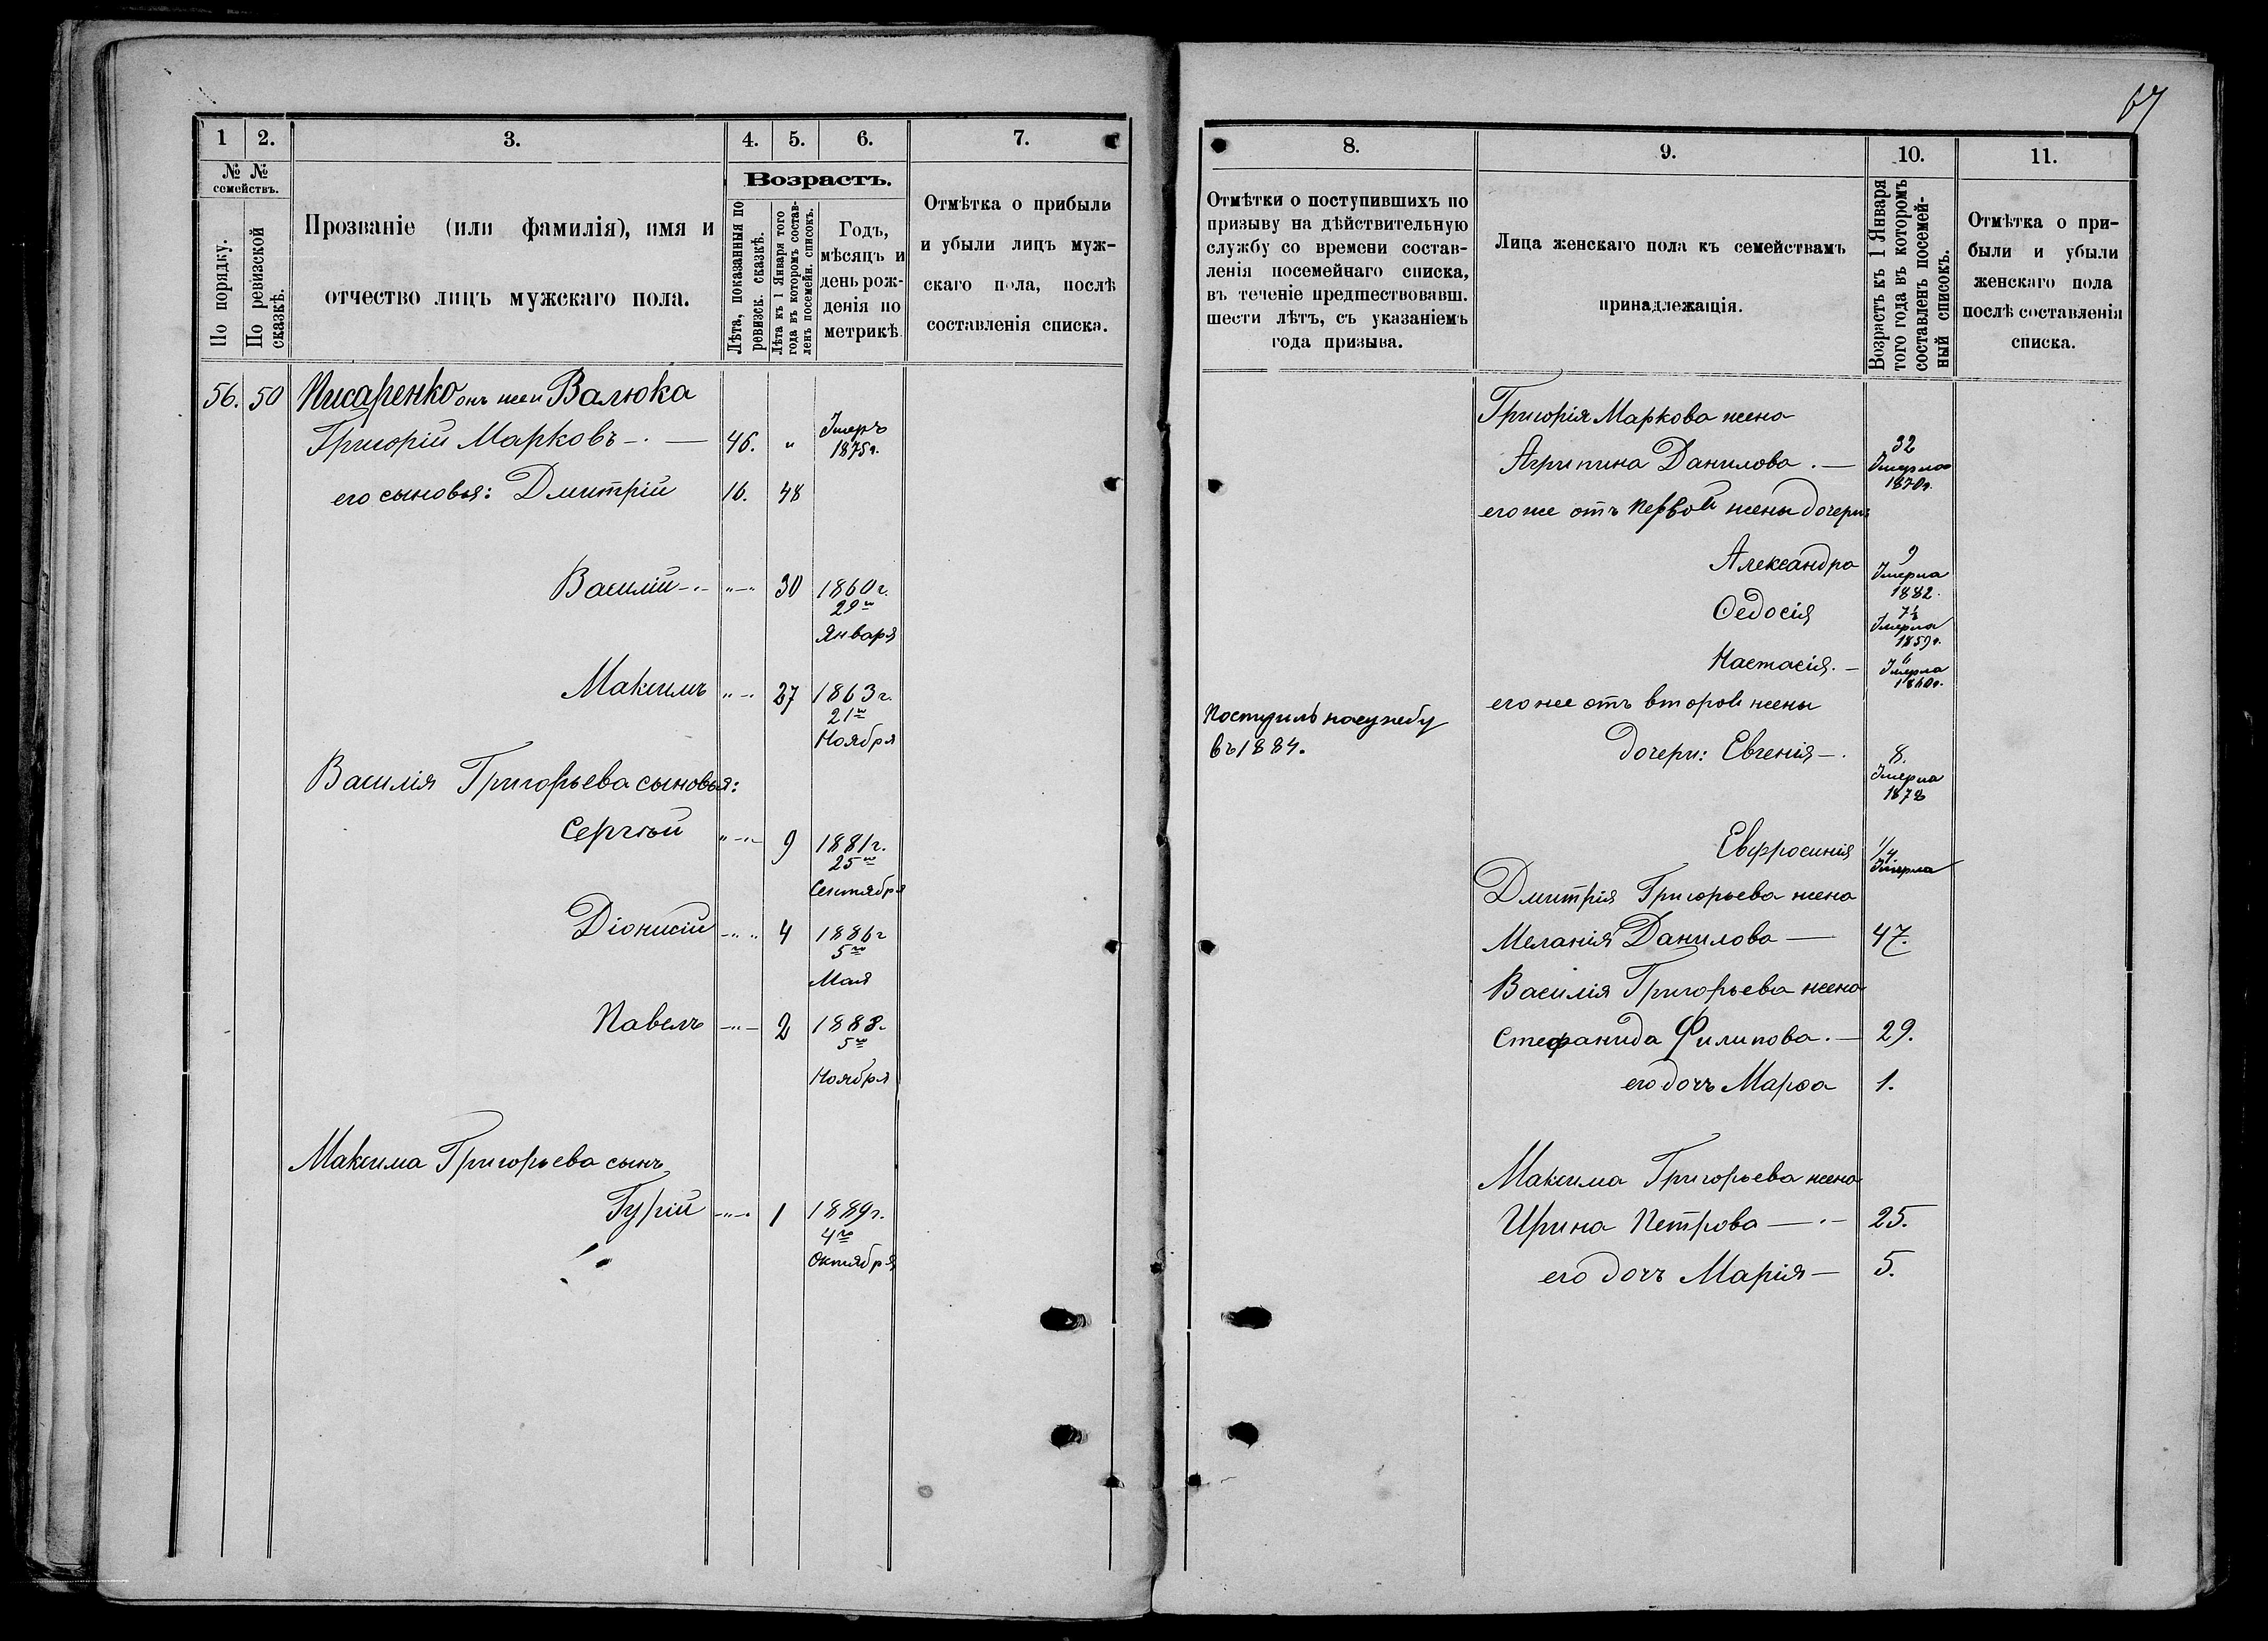 67
1 2. 3. 4. 5. 6. 7.
№ № семействъ.
По порядку.
По ревизской сказкѣ.
Прозваніе (или фамилія), имя и
отчество лицъ мужскаго пола.
Возрастъ.
Лѣта, показанныя по
ревизск. сказкѣ.
Лѣта къ 1 Января того
года въ которомъ состав-
ленъ посемейн. списокъ.
Годъ,
мѣсяцъ и
день рож-
денія по
метрикѣ
Отмѣтка о прибыли
и убыли лицъ муж-
скаго пола, послѣ
составленія списка.
56. 50 Писаренко онъ же и Валюка
Григорій Марковъ — 46. " Умеръ
1875 г.
его сыновья: Дмитрій 16. 48
Василій " 30 1860 г.
29го
Января
Максимъ " 27 1863 г.
21го
Ноября
Василія Григорьева сыновья:
Сергѣй " 9 1881 г.
25го
Сентября
Діонисій " 4 1886 г
5го
Мая
Павелъ " 2 1888.
5го
Ноября
Максима Григорьева сынъ
Гурій " 1 1889 г.
4го
Октября
8. 9. 10. 11.
Отмѣтки о поступившихъ по
призыву на дѣйствительную
службу со времени состав-
ленія посемейнаго списка,
въ теченіе предшествовавш.
шести лѣтъ, съ указаніемъ
года призыва.
Лица женскаго пола къ семействамъ
принадлежащія.
Возрастъ къ 1 Января
того года въ которомъ
составленъ посемей-
ный списокъ.
Отмѣтка о при-
были и убыли
женскаго пола
послѣ составленія
списка.
Григорія Маркова жена
Агрипина Данилова. — 32
Умерла
1870 г.
его же отъ первой жены дочери:
Александра 9
Умерла
1882.
Ѳедосія 7½
Умерла
1859 г.
Настасія. — 6
Умерла
1860 г.
его же отъ второй жены
Поступилъ на службу
въ 1884.
дочери: Евгенія — 8.
Умерла
1878
Евфросинія 1/4
Умерла
Дмитрія Григорьева жена
Меланія Данилова — 47.
Василія Григорьева жена
Стефанида Филипова. — 29.
его дочь Марѳа 1.
Максима Григорьева жена
Ирина Петрова — 25.
его дочь Марія — 5.